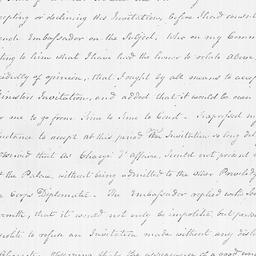 epting or declining this Invitation, before I had consult
ench Embassador on the Subject. Who on my Commu
ting to him what I have had the honor to relate above,
cidedly of opinion, that I ought by all means to accep
Minister's Invitation, and added that it would be easi
or me to go from time to time to Court. I expressed my
luctance to accept at this period the Invitation so long del
bserved that as Chargé d'Affaires, I could not present m
t the Palace, without being admitted to the other Priviledg
e Corps Diplomatic. The Embassador replied with so
armth, that it would not only be impolitic, but per
polite to refuse an Invitation made without any disti